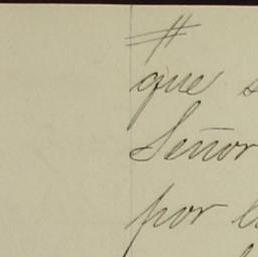 #
que
Señor
por